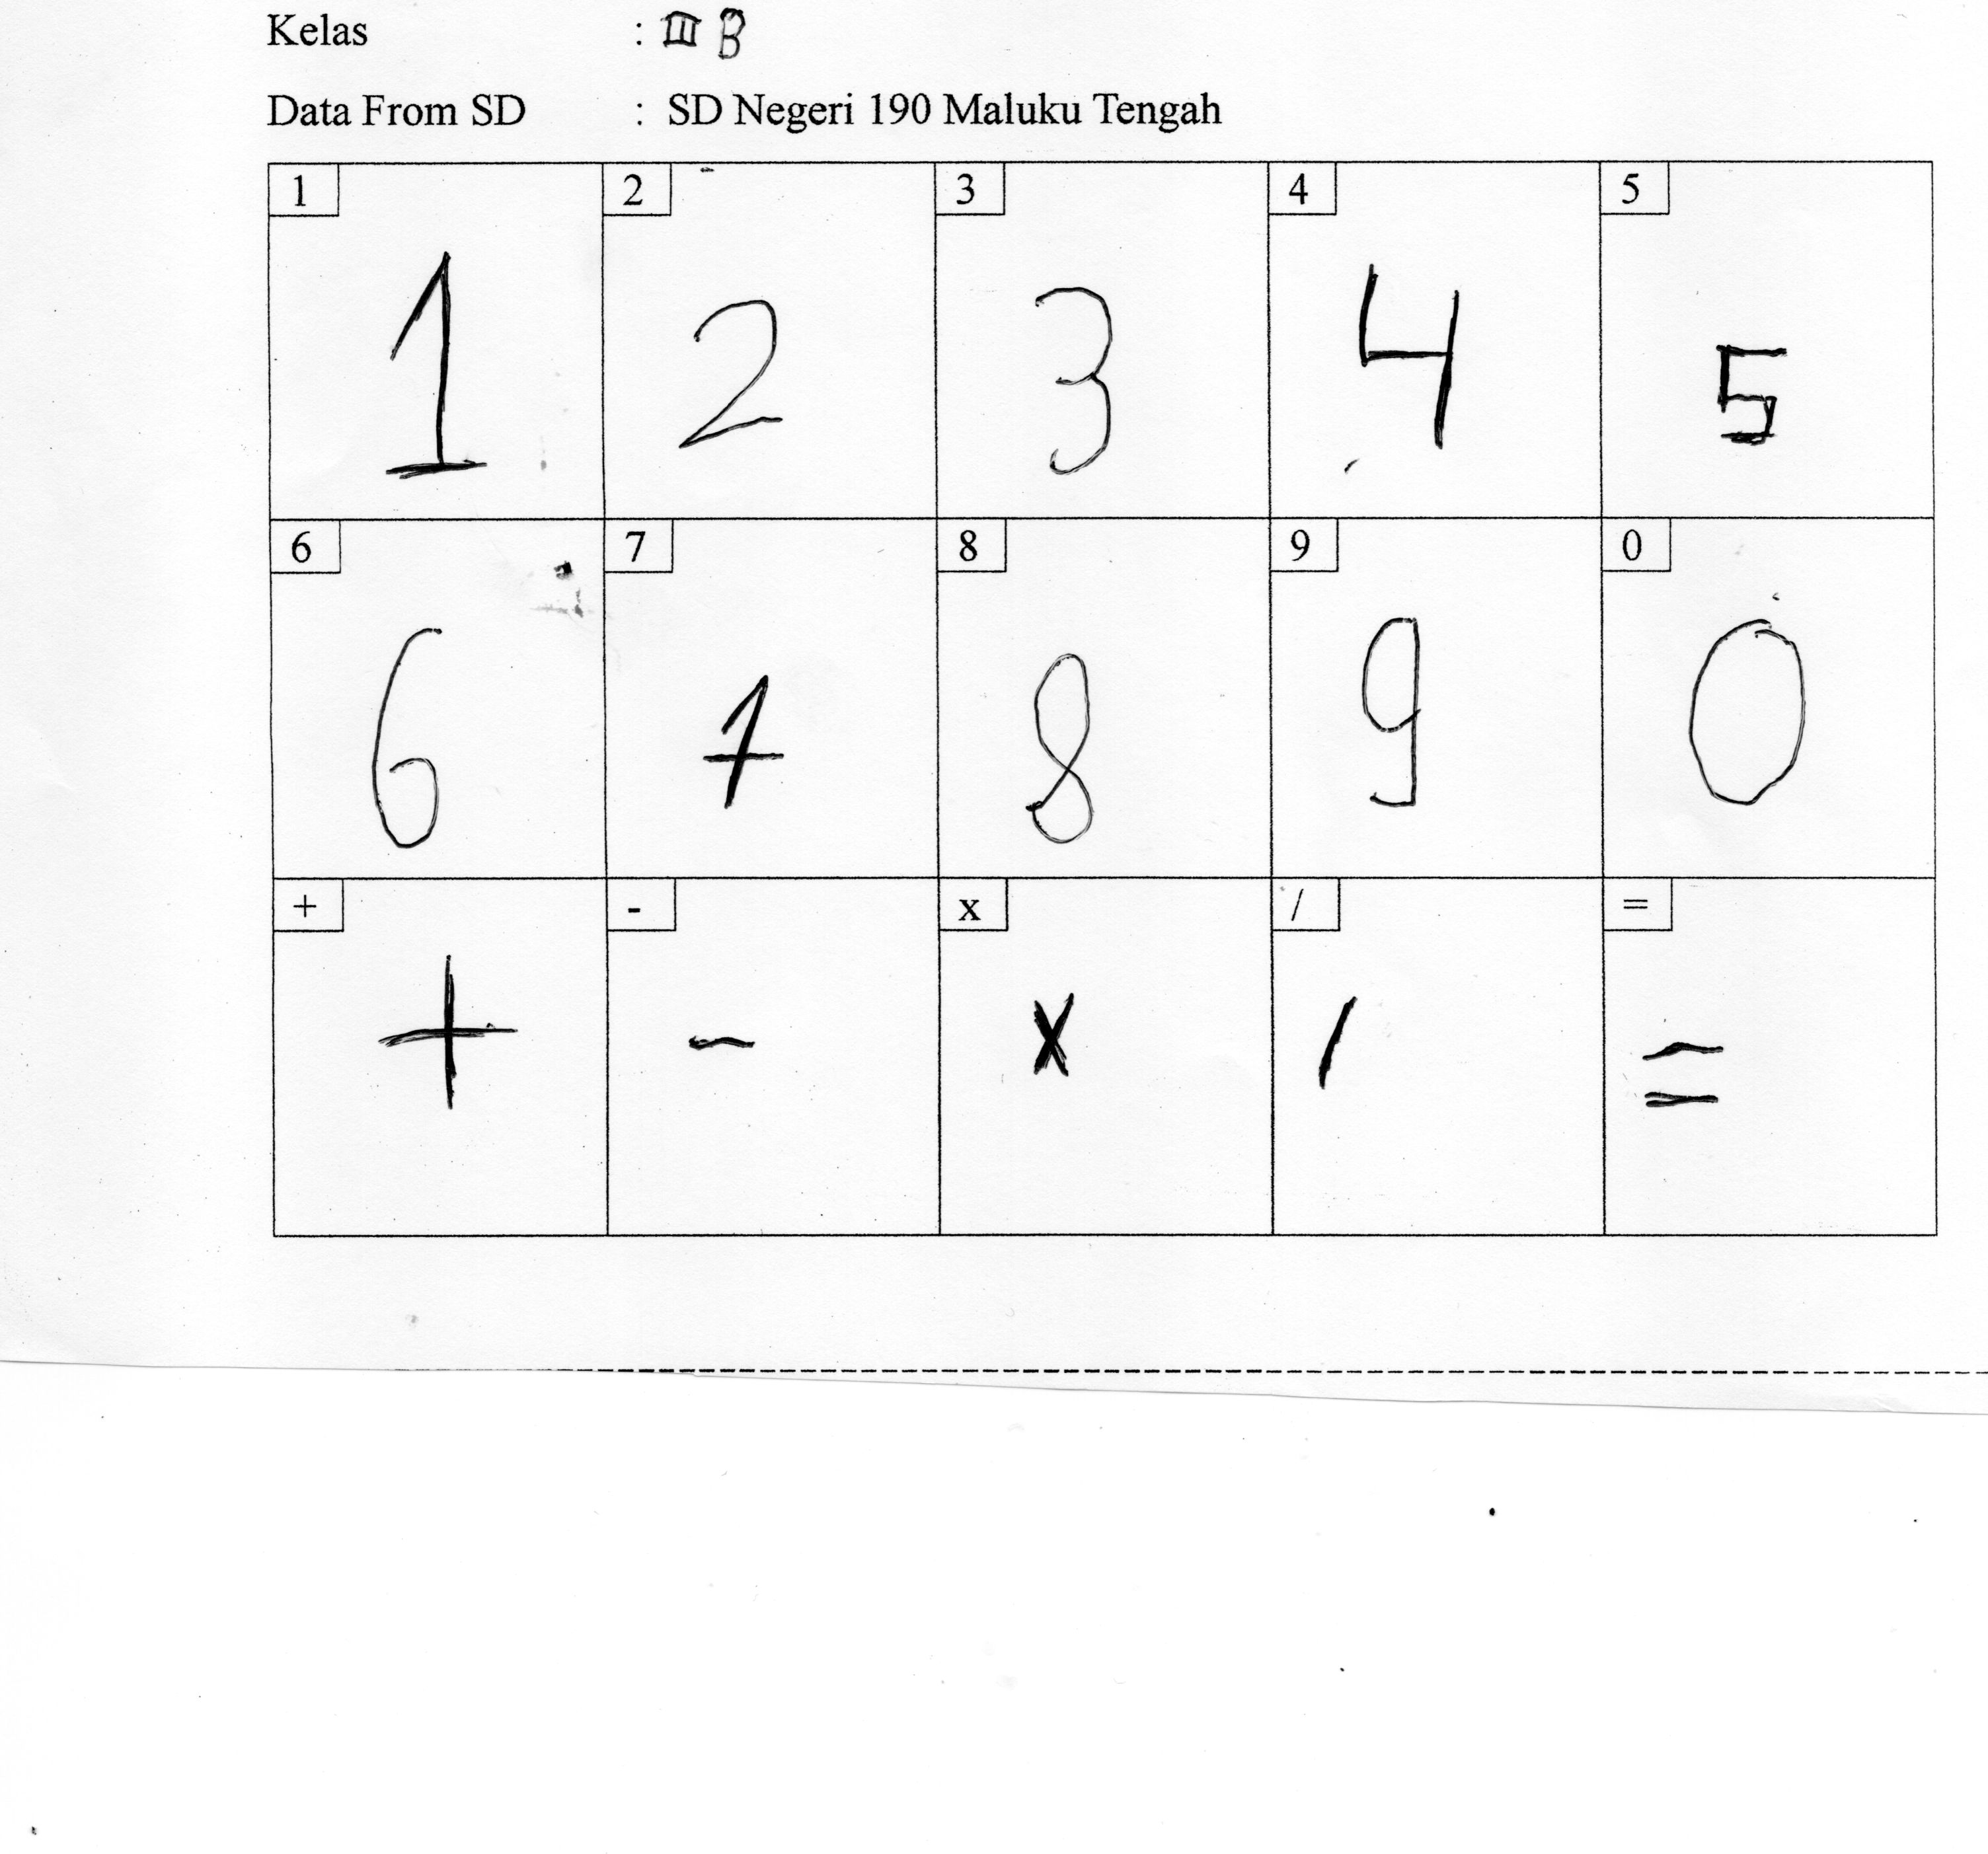 Kelas : III B
Data From SD : SD Negeri 190 Maluku Tengah
1 2 3 4 5
1 2 3 4 5
6 7 8 9 0
6 7 8 9 0
+ - x / =
+ - x / =